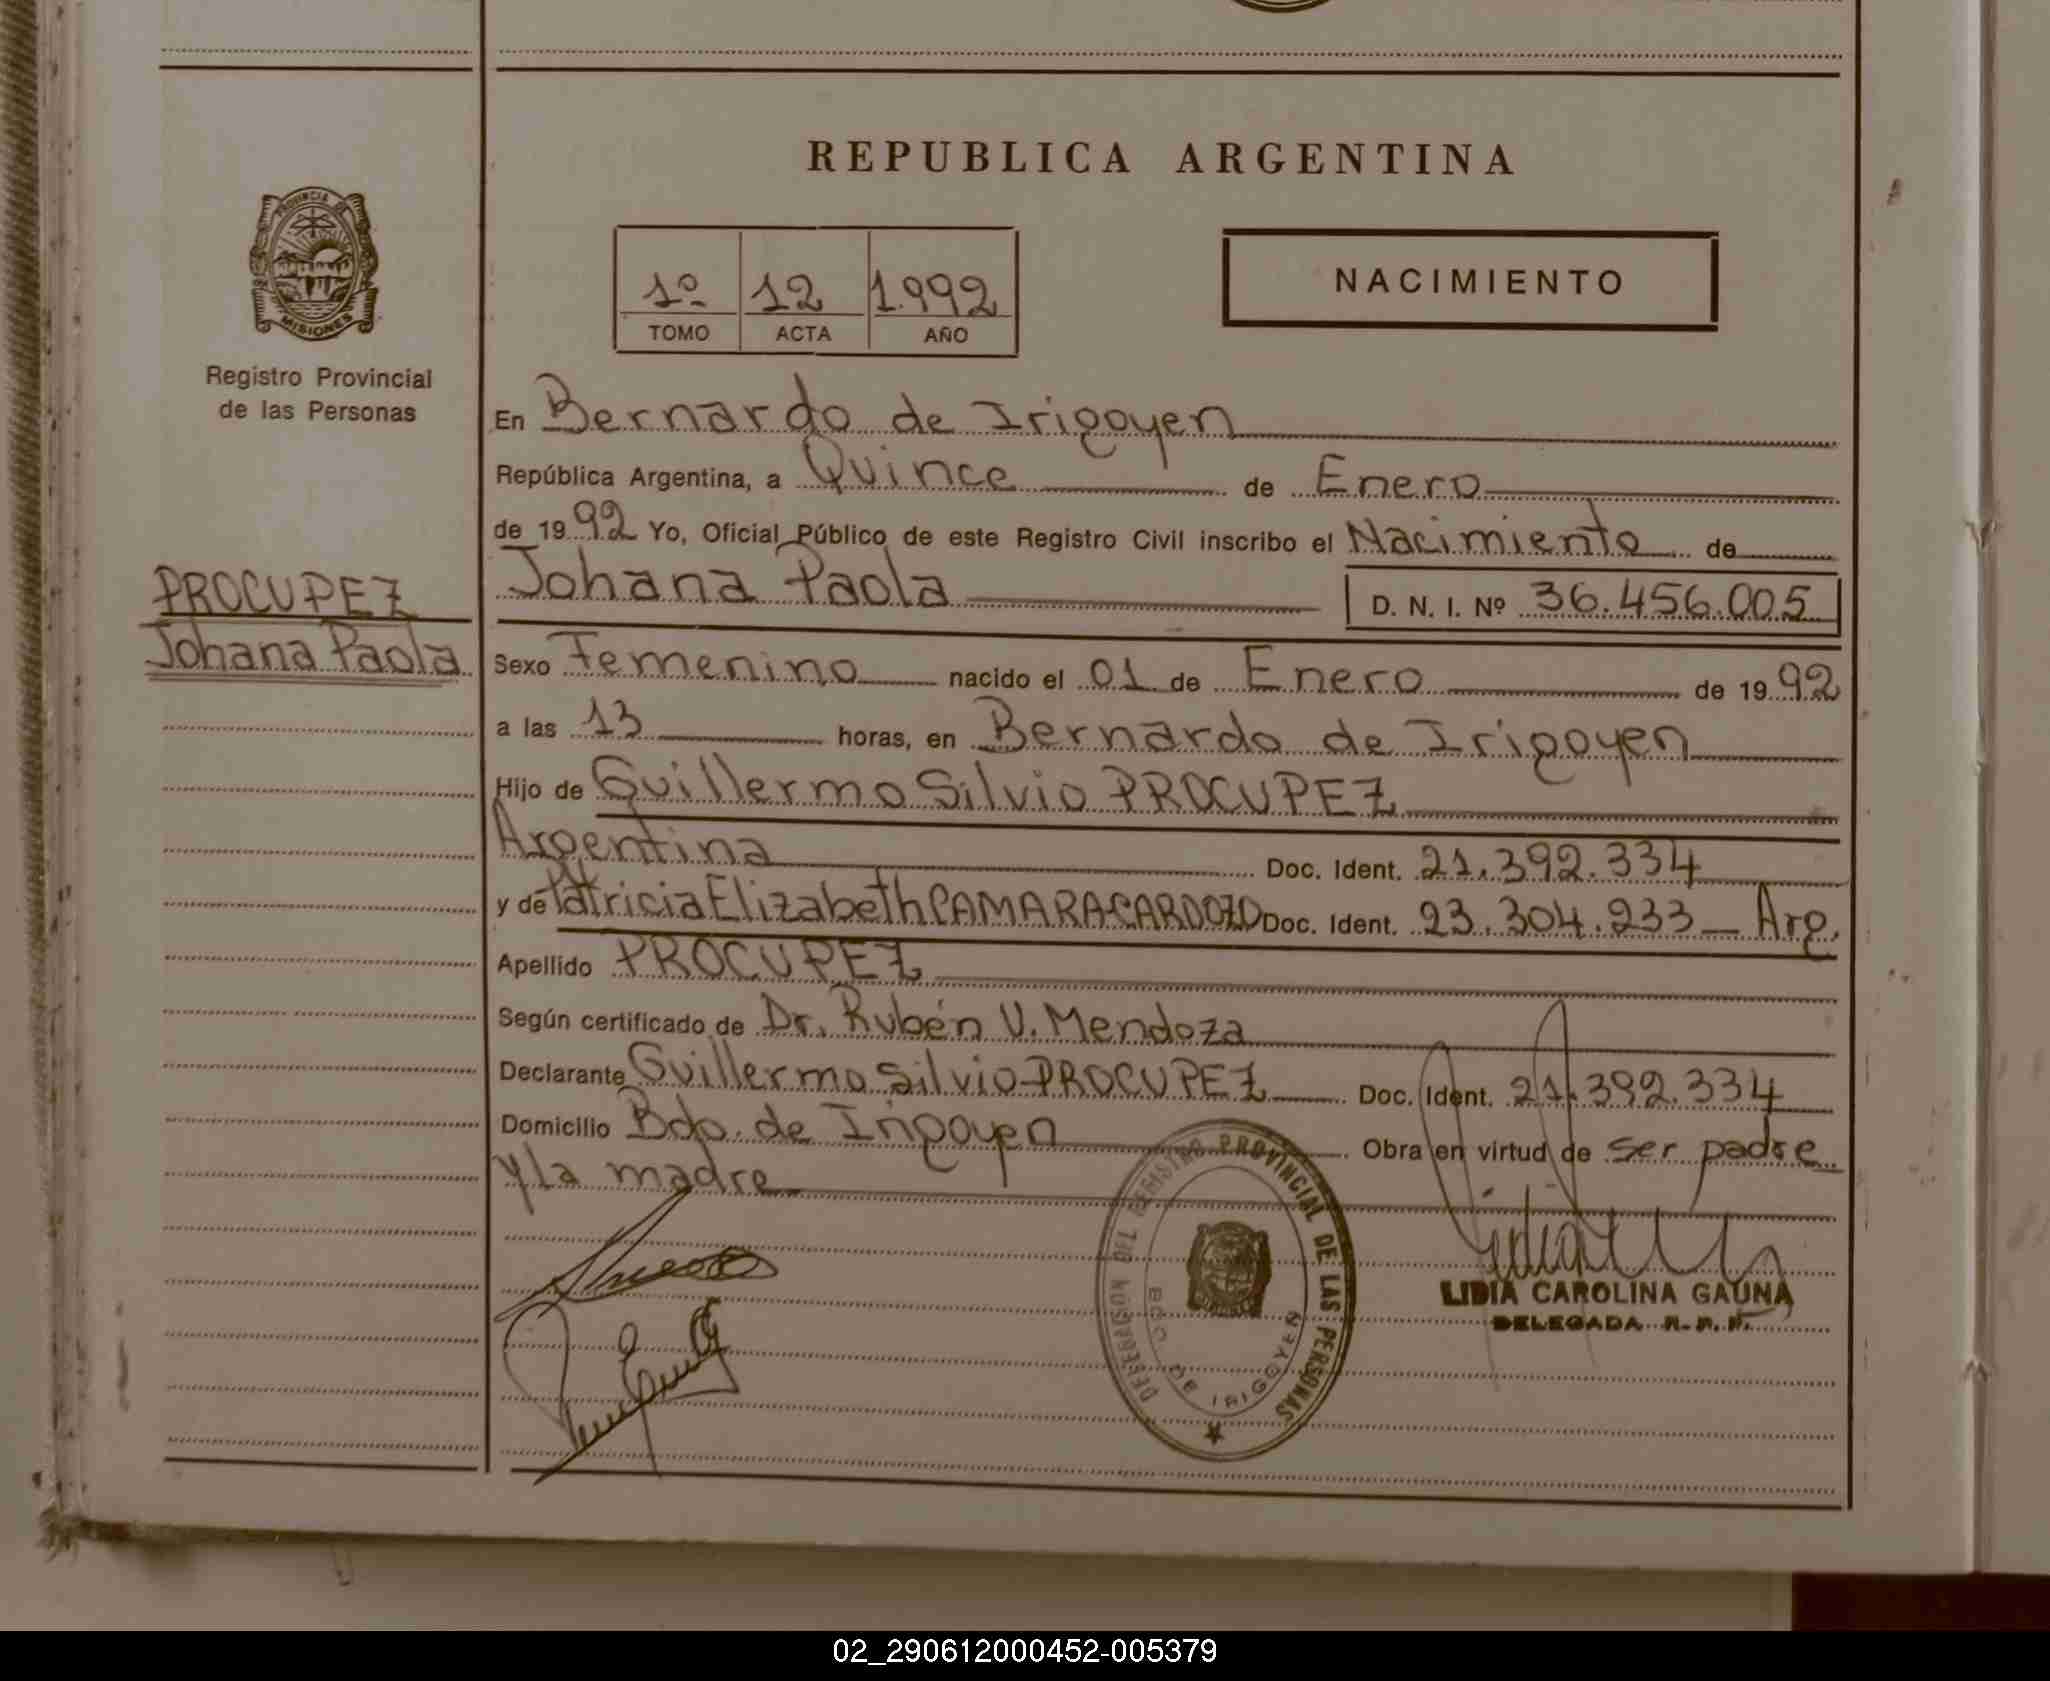 REPUBLICA ARGENTINA
PROVINCIA DE
MISIONES
Registro Provincial
de las Personas
PROCUPEZ
Johana Paola
1º 12 1.992
TOMO ACTA AÑO
NACIMIENTO
En Bernardo de Irigoyen
República Argentina, a Quince de Enero
de 1992 Yo, Oficial Público de este Registro Civil inscribo el Nacimiento de
Johana Paola D. N. I. Nº 36.456.005
Sexo Femenino nacido el 01 de Enero de 1992
a las 13 horas, en Bernardo de Irigoyen
Hijo de Guillermo Silvio PROCUPEZ
Argentina Doc. Ident. 21.392.334
y de Patricia Elizabeth CAMARA CARDOZO Doc. Ident. 23.304.233 - Arg.
Apellido PROCUPEZ
Según certificado de Dr. Rubén V. Mendoza
Declarante Guillermo Silvio PROCUPEZ Doc. Ident. 21.392.334
Domicilio Bdo. de Irigoyen Obra en virtud de ser padre
y la madre
DELEGACION DEL REGISTRO PROVINCIAL DE LAS PERSONAS
BDO. DE IRIGOYEN
LIDIA CAROLINA GAUNA
DELEGADA R. P. P.
02_290612000452-005379